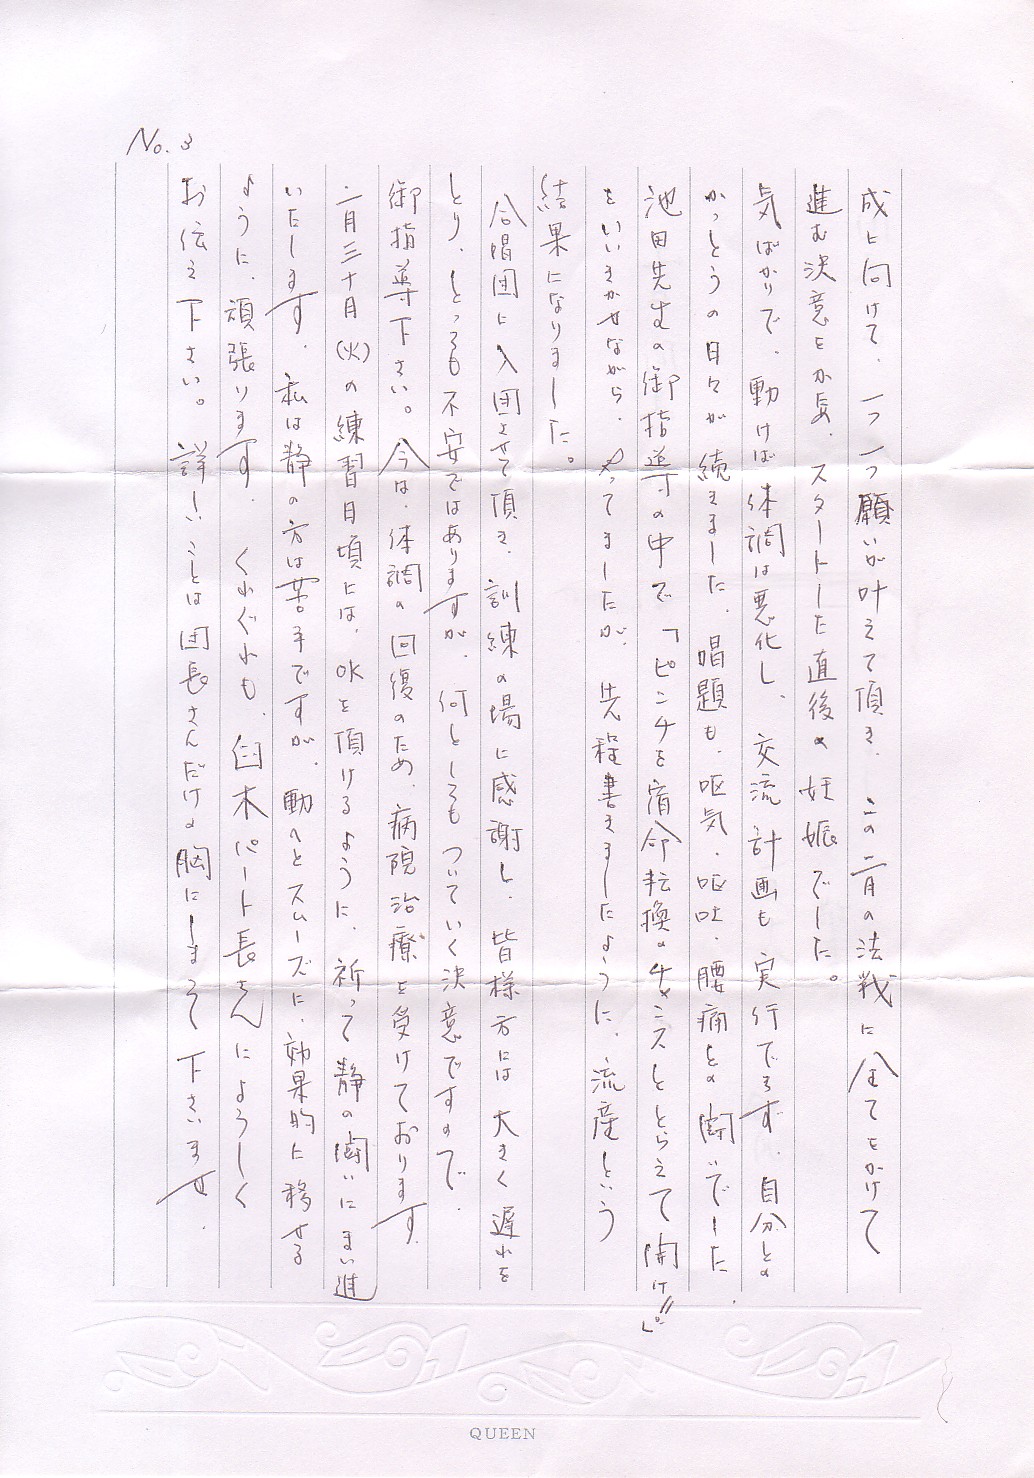 No. 3
成に向けて、一つ一つ願いが叶えて頂き、この二月の法戦に全てをかけて
進む決意をかため、スタートした直後の妊娠でした。
気ばかりで、動けば体調は悪化し、交流計画も実行できず、自分との
かっとうの日々が続きました。唱題も、呕気・呕吐・腰痛との闘いでした。
池田先生の御指導の中で「ピンチを宿命転換のチャンスととらえて闘け!!」
をいいきかせながら、やってきましたが、先程書きましたように、流産という
結果になりました。
合唱団に入団させて頂き、訓練の場に感謝し、皆様方には大きく遅れを
とり、とっても不安ではありますが、何としてもついていく決意ですので、
御指導下さい。今は、体調の回復のため、病院治療を受けております。
二月三十日(火)の練習日頃には、OKを頂けるように、祈って静の闘いにまい進
いたします。私は静の方は苦手ですが、動へとスムーズに、効果的に移せる
ように、頑張ります。くれぐれも、臼木パート長さんによろしく
お伝え下さい。詳しいことは団長さんだけの胸にしまって下さいませ。
QUEEN